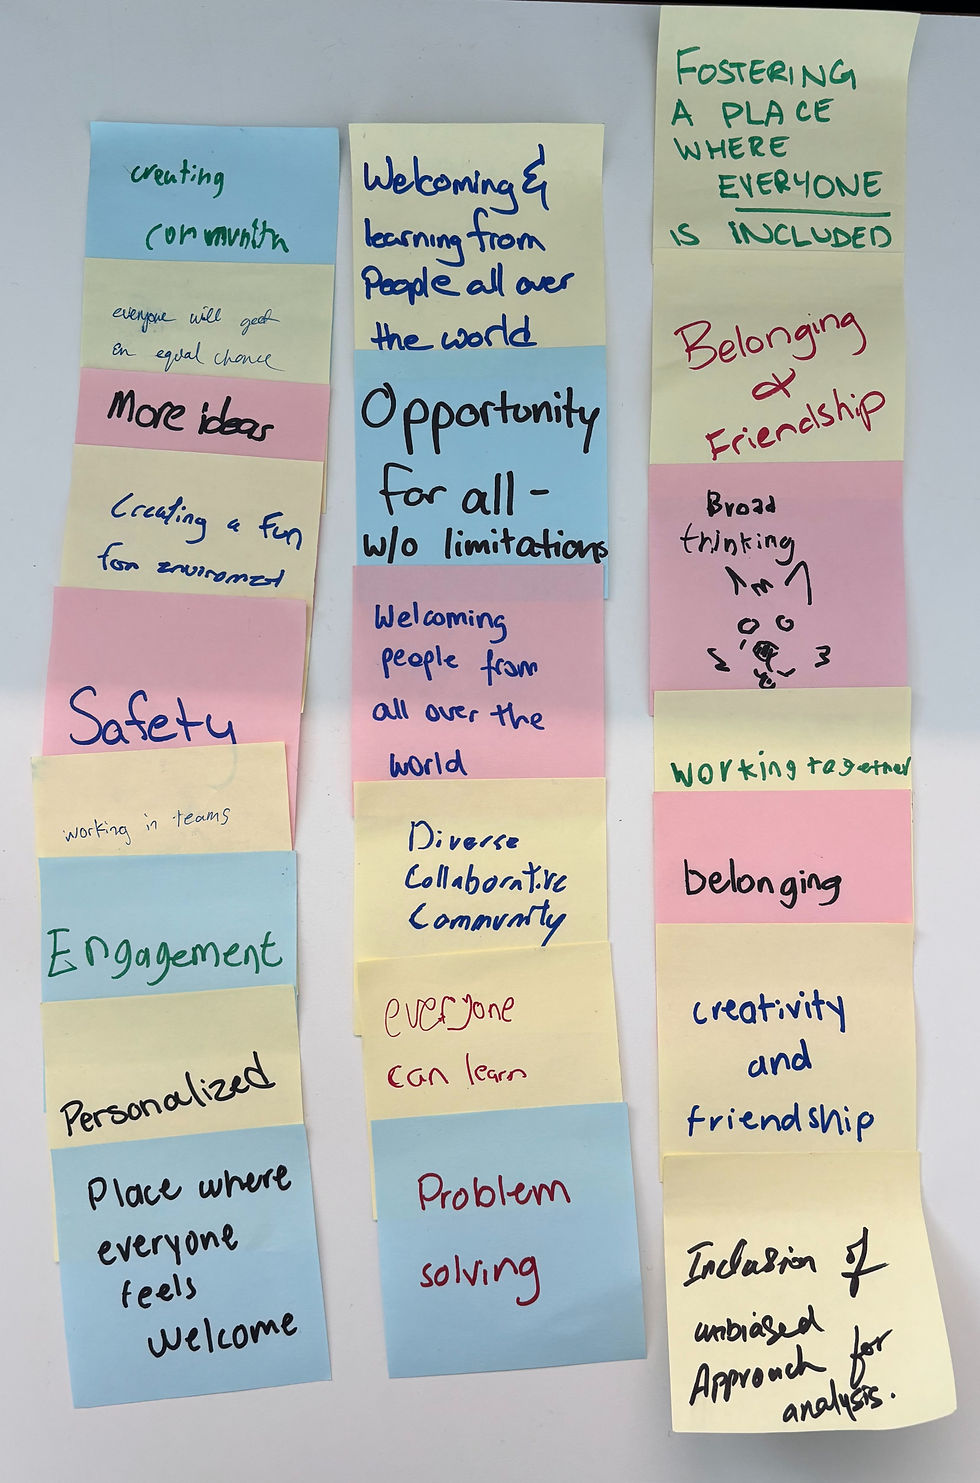 creating
community
everyone will get
an equal chance
More ideas
Creating a fun
for enviroment
Safety
working in teams
Engagement
Personalized
Place where
everyone
feels
Welcome
Welcoming &
learning from
People all over
the world
Opportunity
for all -
w/o limitations
Welcoming
people from
all over the
world
Diverse
Collaborative
Community
everyone
can learn
Problem
solving
FOSTERING
A PLACE
WHERE
EVERYONE
IS INCLUDED
Belonging
&
Friendship
Broad
thinking
working together
belonging
creativity
and
friendship
Inclusion of
unbiased
Approach for
analysis.